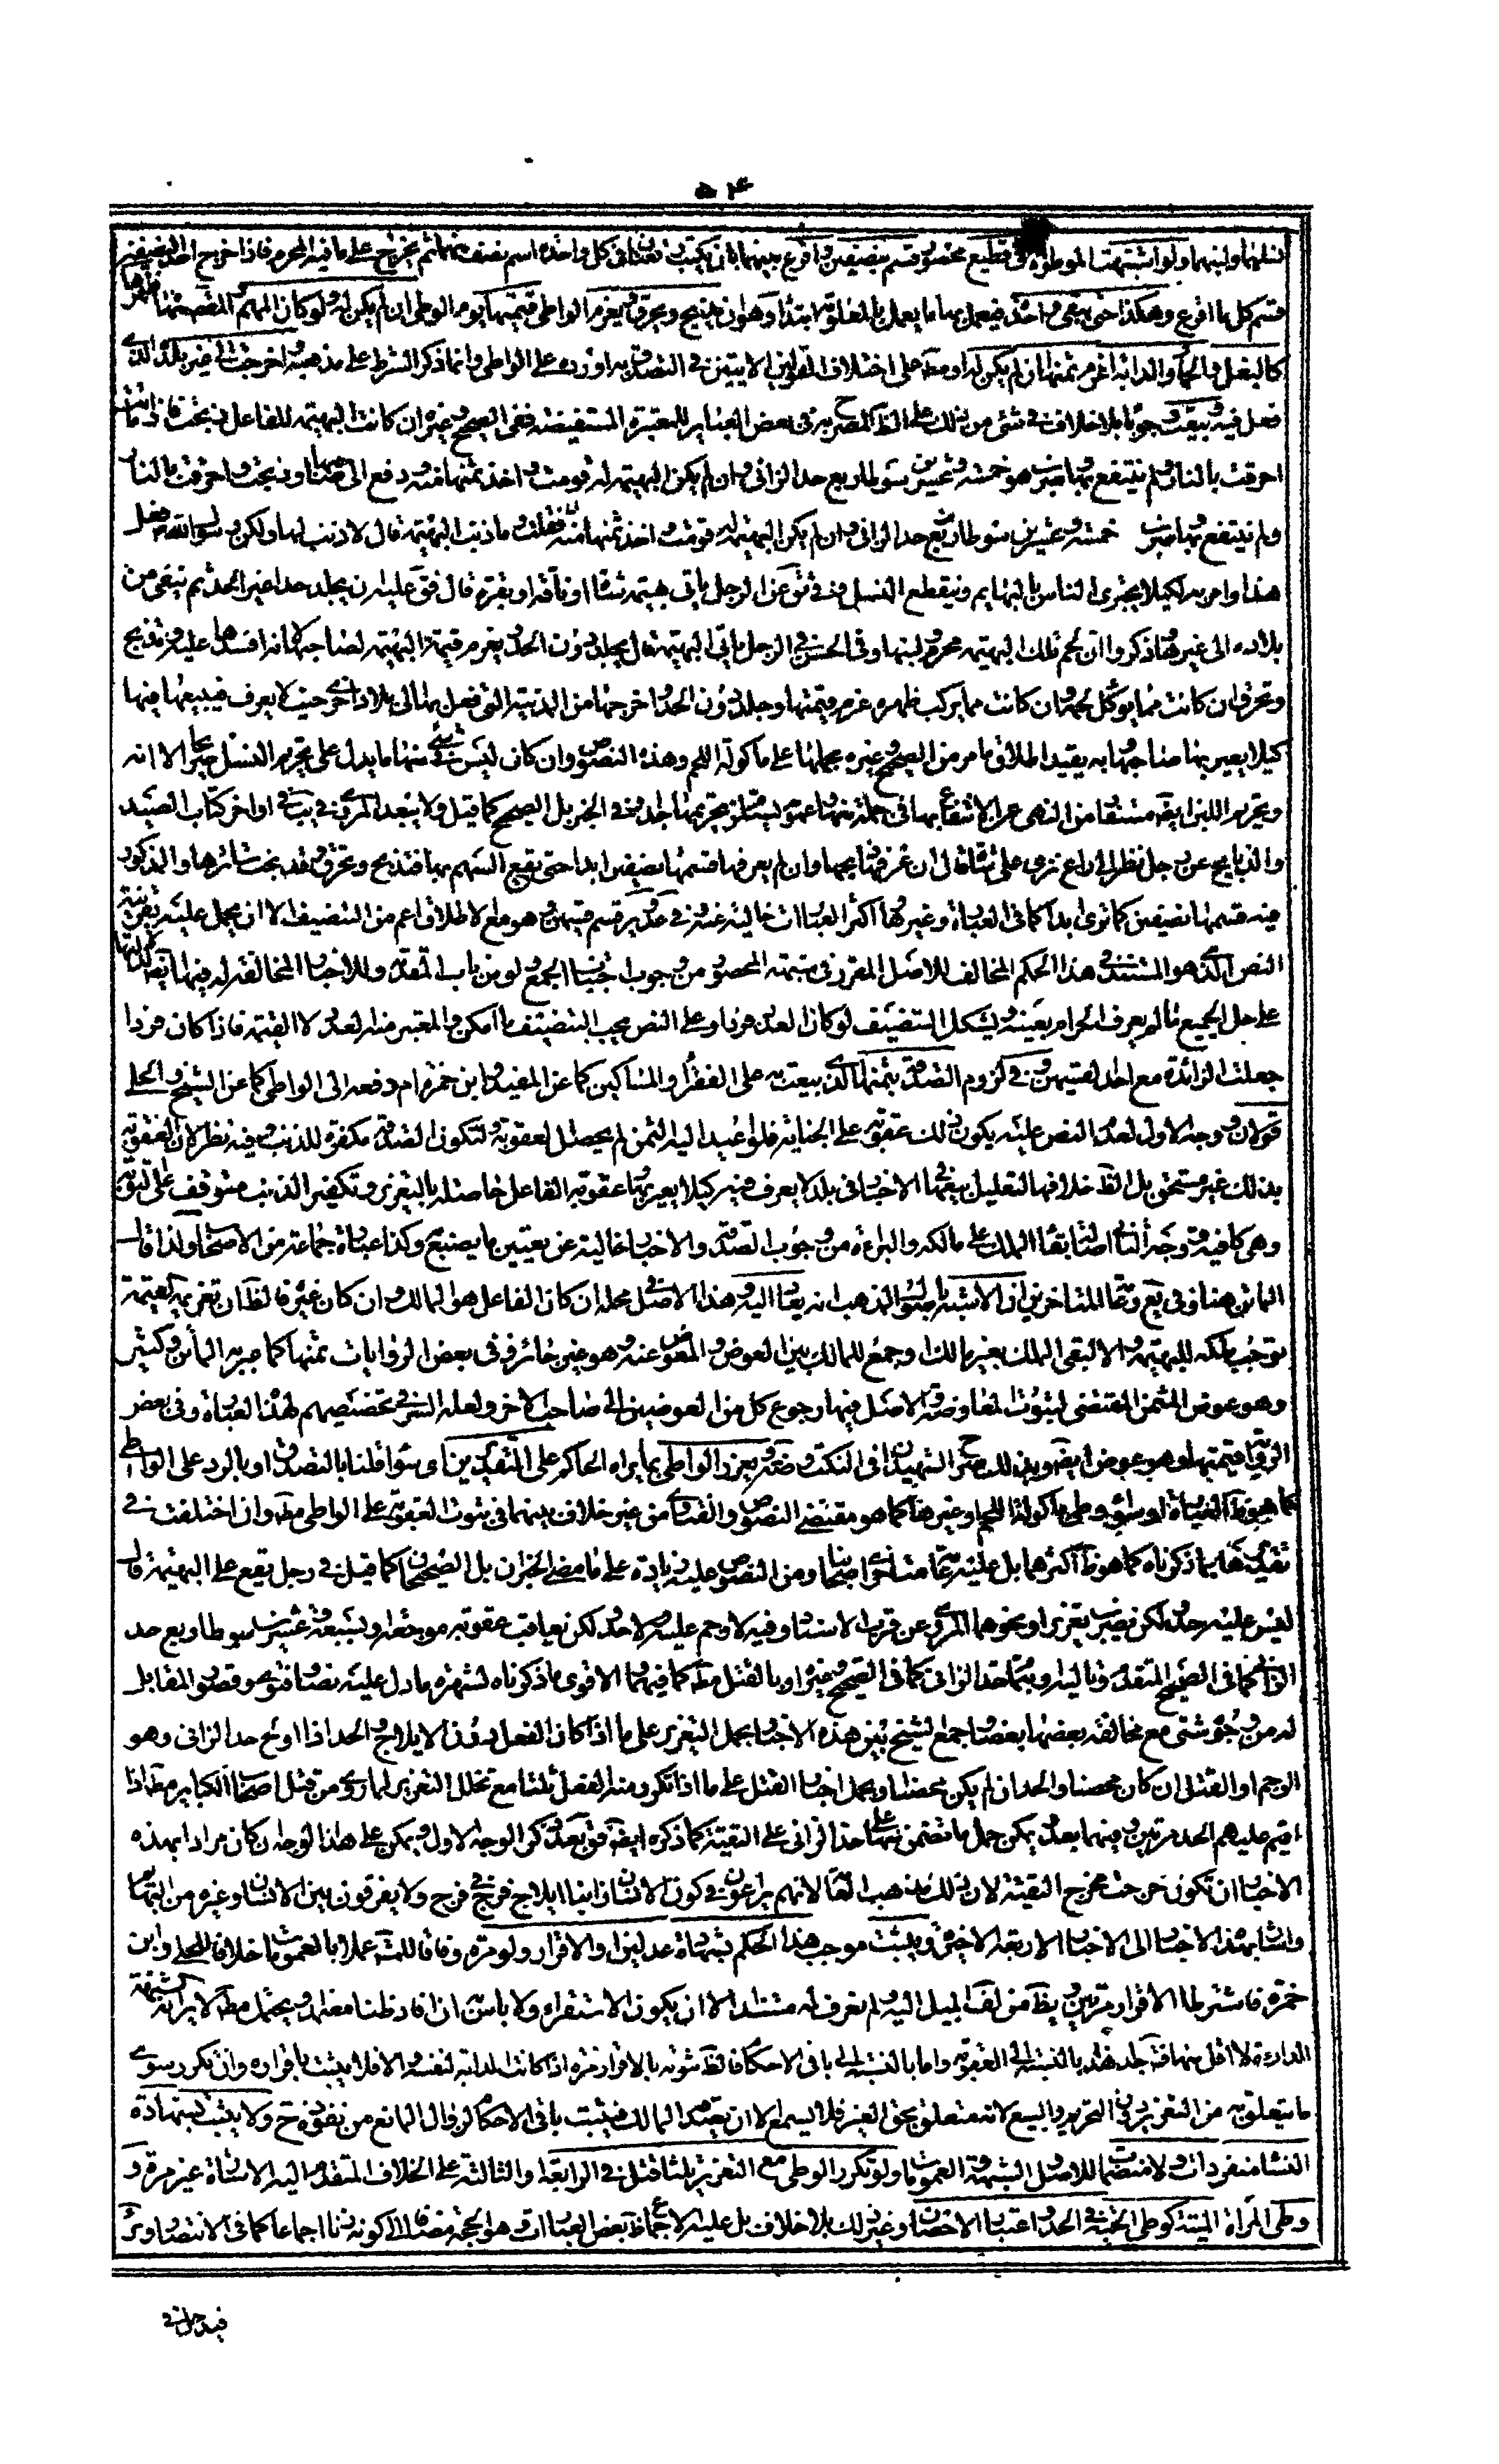 ۵۰۴
نسلهما ولبنهما ولو اشتبهت الموطوءة في قطيع محصور قسم نصفين واقرع بينهما بان يكتب رقعتان في كل واحدة اسم نصف منهما ثم يخرج على ما فيه المحرم فاذا خرج احد النصفين
قسم كل ما اقرع وهكذا حتى يبقى واحدة فيعمل بها ما يعمل بالمعلوم ابتداء وهو ان يذبح ويحرق ويغرم الواطى قيمتها يوم الوطى ان لم يكن له ولو كان المهم المقصود منها ظهرها
كالبغل والحمار والدابة اغرم ثمنها ان لم يكن له او مطا على اختلاف القولين الاتيين في التصدق به او رده على الواطى وانما ذكر الشرط على مذهبه واخرجت الى غير بلده الذي
فعل فيه وبيعت وجوبا بلا خلاف في شئ من ذلك على الظ المصرح به في بعض العبائر للمعتبرة المستفيضة ففي الصحيح وغيره ان كانت البهيمة للفاعل ذبحت فاذا ماتت
احرقت بالنار ولم ينتفع بها وضرب هو خمسة وعشرين سوطا ربع حد الزاني وان لم يكن البهيمة له قومت واخذ ثمنها منه ودفع الى صاحبها وذبحت واحرقت بالنار
ولم ينتفع بها وضرب خمسة وعشرين سوطا ربع حد الزاني وان لم يكن البهيمة له قومت واخذ ثمنها منه فقلت وما ذنب البهيمة قال لا ذنب لها ولكن رسول الله ص فعل
هذا وامر به لكيلا يجترى الناس بالبهايم وينقطع النسل وفي ثق عن الرجل ياتي بهيمة شاة او ناقة او بقرة قال فق عليه ان يجلد حدا غير الحد ثم ينفى من
بلاده الى غيرها وذكروا ان لحم تلك البهيمة محرم ولبنها وفي الحسن في الرجل ياتي البهيمة قال يجلد دون الحد ويغرم قيمة البهيمة لصاحبها لانه افسدها عليه وتذبح
وتحرق ان كانت مما يوكل لحمه وان كانت مما يركب ظهره غرم قيمتها وجلد دون الحد واخرجها من المدينة التي فعل بها الى بلاد اخرى حيث لا يعرف فيبيعها فيها
كيلا يعير بها صاحبها وبه يقيد اطلاق ما مر من الصحيح وغيره بحملها على ماكولة اللحم وهذه النصوص وان كان ليس في شئ منها ما يدل على تحريم النسل صريحا الا انه
وتحريم اللبن ايضا مستفاد من النهى عن الانتفاع بها في جملة منها وعمومه يستلزم تحريمهما جدا وفي الخبر بل الصحيح كما قيل ولا يبعد المروى في يب في اواخر كتاب الصيد
والذبايح عن رجل نظر الى راع نزى على شاة قال ان عرفها ذبحها وان لم يعرفها قسمها نصفين ابدا حتى يقع السهم بها فتذبح وتحرق وقد نجت سائرها والمذكور
فيه قسمتها نصفين كما ترى ابدا كما في العبارة وغيرها واكثر العبارات خالية عنه وفي عد ير قسم قسمين وهو مع الاطلاق اعم من التنصيف الا ان يحمل عليه بقرينة
النص الذي هو المستند في هذا الحكم المخالف للاصل المقرر في شبهة المحصور من وجوب اجتناب الجميع لو من باب المقدمة وللاخبار المخالفة له فيها ايضا لدلالتها
على حل الجميع ما لم يعرف الحرام بعينه ويشكل التنصيف لو كان العدد فردا وعلى النص يجب التنصيف ما امكن والمعتبر منه العدد لا القيمة فاذا كان فردا
جعلت الزائدة مع احد القسمين وفي لزوم الصدقة بثمنها الذي بيعت به على الفقراء والمساكين كما عن المفيد وابن حمزة ام دفعه الى الواطى كما عن الشيخ والحلى
قولان ووجه الاول لعد النص عليه يكون ذلك عقوبة على الجناية فلو اعيد اليه الثمن لم يحصل العقوبة ولتكون الصدقة مكفرة للذنب وفيه نظر لان العقوبة
بذلك غير متحقق بل الظ خلافها لتعليل بيعها في الاخبار في بلد لا يعرف فيه كيلا يعير بها وعقوبة الفاعل حاصلة بالتعزير وتكفير الذنب متوقف على التوبة
وهي كافية ووجه الثاني اصالة بقاء الملك على مالكه والبراءة من وجوب الصدقة والاخبار خالية عن تعيين ما يصنع به وكذا عبارة جماعة من الاصحاب ولذا قال
الماتن هنا وفي يع وتبعا للمتاخرين ان الاشبه باصول المذهب انه يعاد اليه وهذا الاصل في محله ان كان الفاعل هو المالك وان كان غيره فالظ ان تغريمه القيمة
توجب ملكه للبهيمة والا لبقى الملك بغير مالك وجمع للمالك بين العوض والمعوض عنه وهو غير جائز وفي بعض الروايات ثمنها كما عبر به الماتن وكثير
وهو عوض المثمن المقتضى لثبوت المعاوضة والاصل فيها رجوع كل من العوضين الى صاحب الاخر ولعله السر في تخصيصهم لهذا العبارة وفي بعض
الروايات قيمتها وهو عوض ايضا وبذلك صرح الشهيدان في النكت وضة ويعزر الواطى بما يراه الحاكم على التقديرين اى سواء قلنا بالتصدق او بالرد على الواطى
كما هو ظ العبارة او سواء وطى ماكولة اللحم او غيرها كما هو مقتضى النصوص والفتاوى من غير خلاف بينهما في ثبوت العقوبة على الواطى مطا وان اختلفت في
تقديرها بما ذكرناه كما هو ظ اكثرها بل عليه عامة متاخرى اصحابنا ومن النصوص عليه زيادة على ما مضى الخبران بل الصحيحان كما قيل في رجل يقع على البهيمة قال
ليس عليه حد ولكن يضرب تعزيرا ونحوهما المروى عن قرب الاسناد وفيه لا رجم عليه ولا حد لكن يعاقب عقوبة موجعة او بخمسة وعشرين سوطا ربع حد
الزاني كما في الصحيح المتقدم وتاليه او بتمام حد الزاني كما في الصحيح وغيره او بالقتل مطا كما فيهما والاقوى ما ذكرناه لشهرة ما دل عليه نصا وفتوى وقصور المقابل
له من وجوه شتى مع مخالفة بعضها بعضا وجمع الشيخ بين هذه الاخبار بحمل التعزير على ما اذا كان الفعل دون الايلاج والحد اذا اولج حد الزاني وهو
الرجم او القتل ان كان محصنا والحد ان لم يكن محصنا ويحمل اخبار القتل على ما اذا تكرر منه الفعل ثلثا مع تخلل التعزير لما روى من قتل اصحاب الكبائر مطا اذا
اقيم عليهم الحد مرتين وفيهما بعد ويمكن حمل ما تضمن منها على حد الزاني على التقية كما ذكره ايضا فق بعد ذكر الوجه الاول ويمكن على هذا الوجه ان كان مرادا بهذه
الاخبار ان تكون خرجت مخرج التقية لان ذلك مذهب العامة لانهم يراعون في كون الانسان زانيا ايلاج فرج في فرج ولا يفرقون بين الانسان وغيره من البهايم
واشار بهذه الاخبار الى الاخبار الاربعة الاخيرة ويثبت موجب هذا الحكم بشهادة عدلين او الاقرار ولو مرة وفاقا للمشهور عملا بالعمومات خلافا للحلى وابن
حمزة فاشترطا الاقرار مرتين ويظ من لف الميل اليه ولم نعرف له مستندا الا ان يكون الاستقراء ولا باس به ان افاد ظنا معتمدا ويحتمل مطا لايراثه الشبهة
الدارءة لا اقل منها فتامل جدا هذا بالنسبة الى العقوبة واما بالنسبة الى باقى الاحكام فالظ ثبوته بالاقرار مرة اذا كانت الدابة لنفسه والا فلا يثبت باقراره وان تكرر سوى
ما يتعلق به من التعزير دون التحريم والبيع لانه متعلق بحق الغير فلا يسمع الا ان يصدقه المالك فيثبت باقى الاحكام لزوال المانع من نفوذه ح ولا يثبت بشهادة
النساء منفردات ولا منضمات للاصل والشبهة والعمومات ولو تكرر الوطى مع التعزير ثلثا قتل في الرابعة او الثالثة على الخلاف المتقدم اليه الاشارة غير مرة و
وطى المراة الميتة كوطى الحية في الحد واعتبار الاحصان وغير ذلك بلا خلاف بل عليه الاجماع ظ بعض العبارات وهو الحجة مضافا الى كونه زنا اجماعا كما في الانتصار وئر
فيدخل في